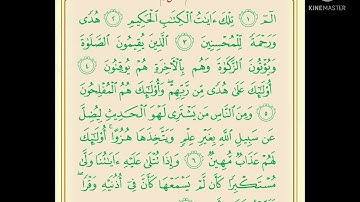 KINEMASTER
الٓمٓ ۝١ تِلۡكَ ءَايَٰتُ ٱلۡكِتَٰبِ ٱلۡحَكِيمِ ۝٢ هُدٗى
وَرَحۡمَةٗ لِّلۡمُحۡسِنِينَ ۝٣ ٱلَّذِينَ يُقِيمُونَ ٱلصَّلَوٰةَ
وَيُؤۡتُونَ ٱلزَّكَوٰةَ وَهُم بِٱلۡأٓخِرَةِ هُمۡ يُوقِنُونَ ۝٤
أُوْلَٰٓئِكَ عَلَىٰ هُدٗى مِّن رَّبِّهِمۡۖ وَأُوْلَٰٓئِكَ هُمُ ٱلۡمُفۡلِحُونَ
۝٥ وَمِنَ ٱلنَّاسِ مَن يَشۡتَرِي لَهۡوَ ٱلۡحَدِيثِ لِيُضِلَّ
عَن سَبِيلِ ٱللَّهِ بِغَيۡرِ عِلۡمٖ وَيَتَّخِذَهَا هُزُوًاۚ أُوْلَٰٓئِكَ
لَهُمۡ عَذَابٞ مُّهِينٞ ۝٦ وَإِذَا تُتۡلَىٰ عَلَيۡهِ ءَايَٰتُنَا وَلَّىٰ
مُسۡتَكۡبِرٗا كَأَن لَّمۡ يَسۡمَعۡهَا كَأَنَّ فِيٓ أُذُنَيۡهِ وَقۡرٗاۖ